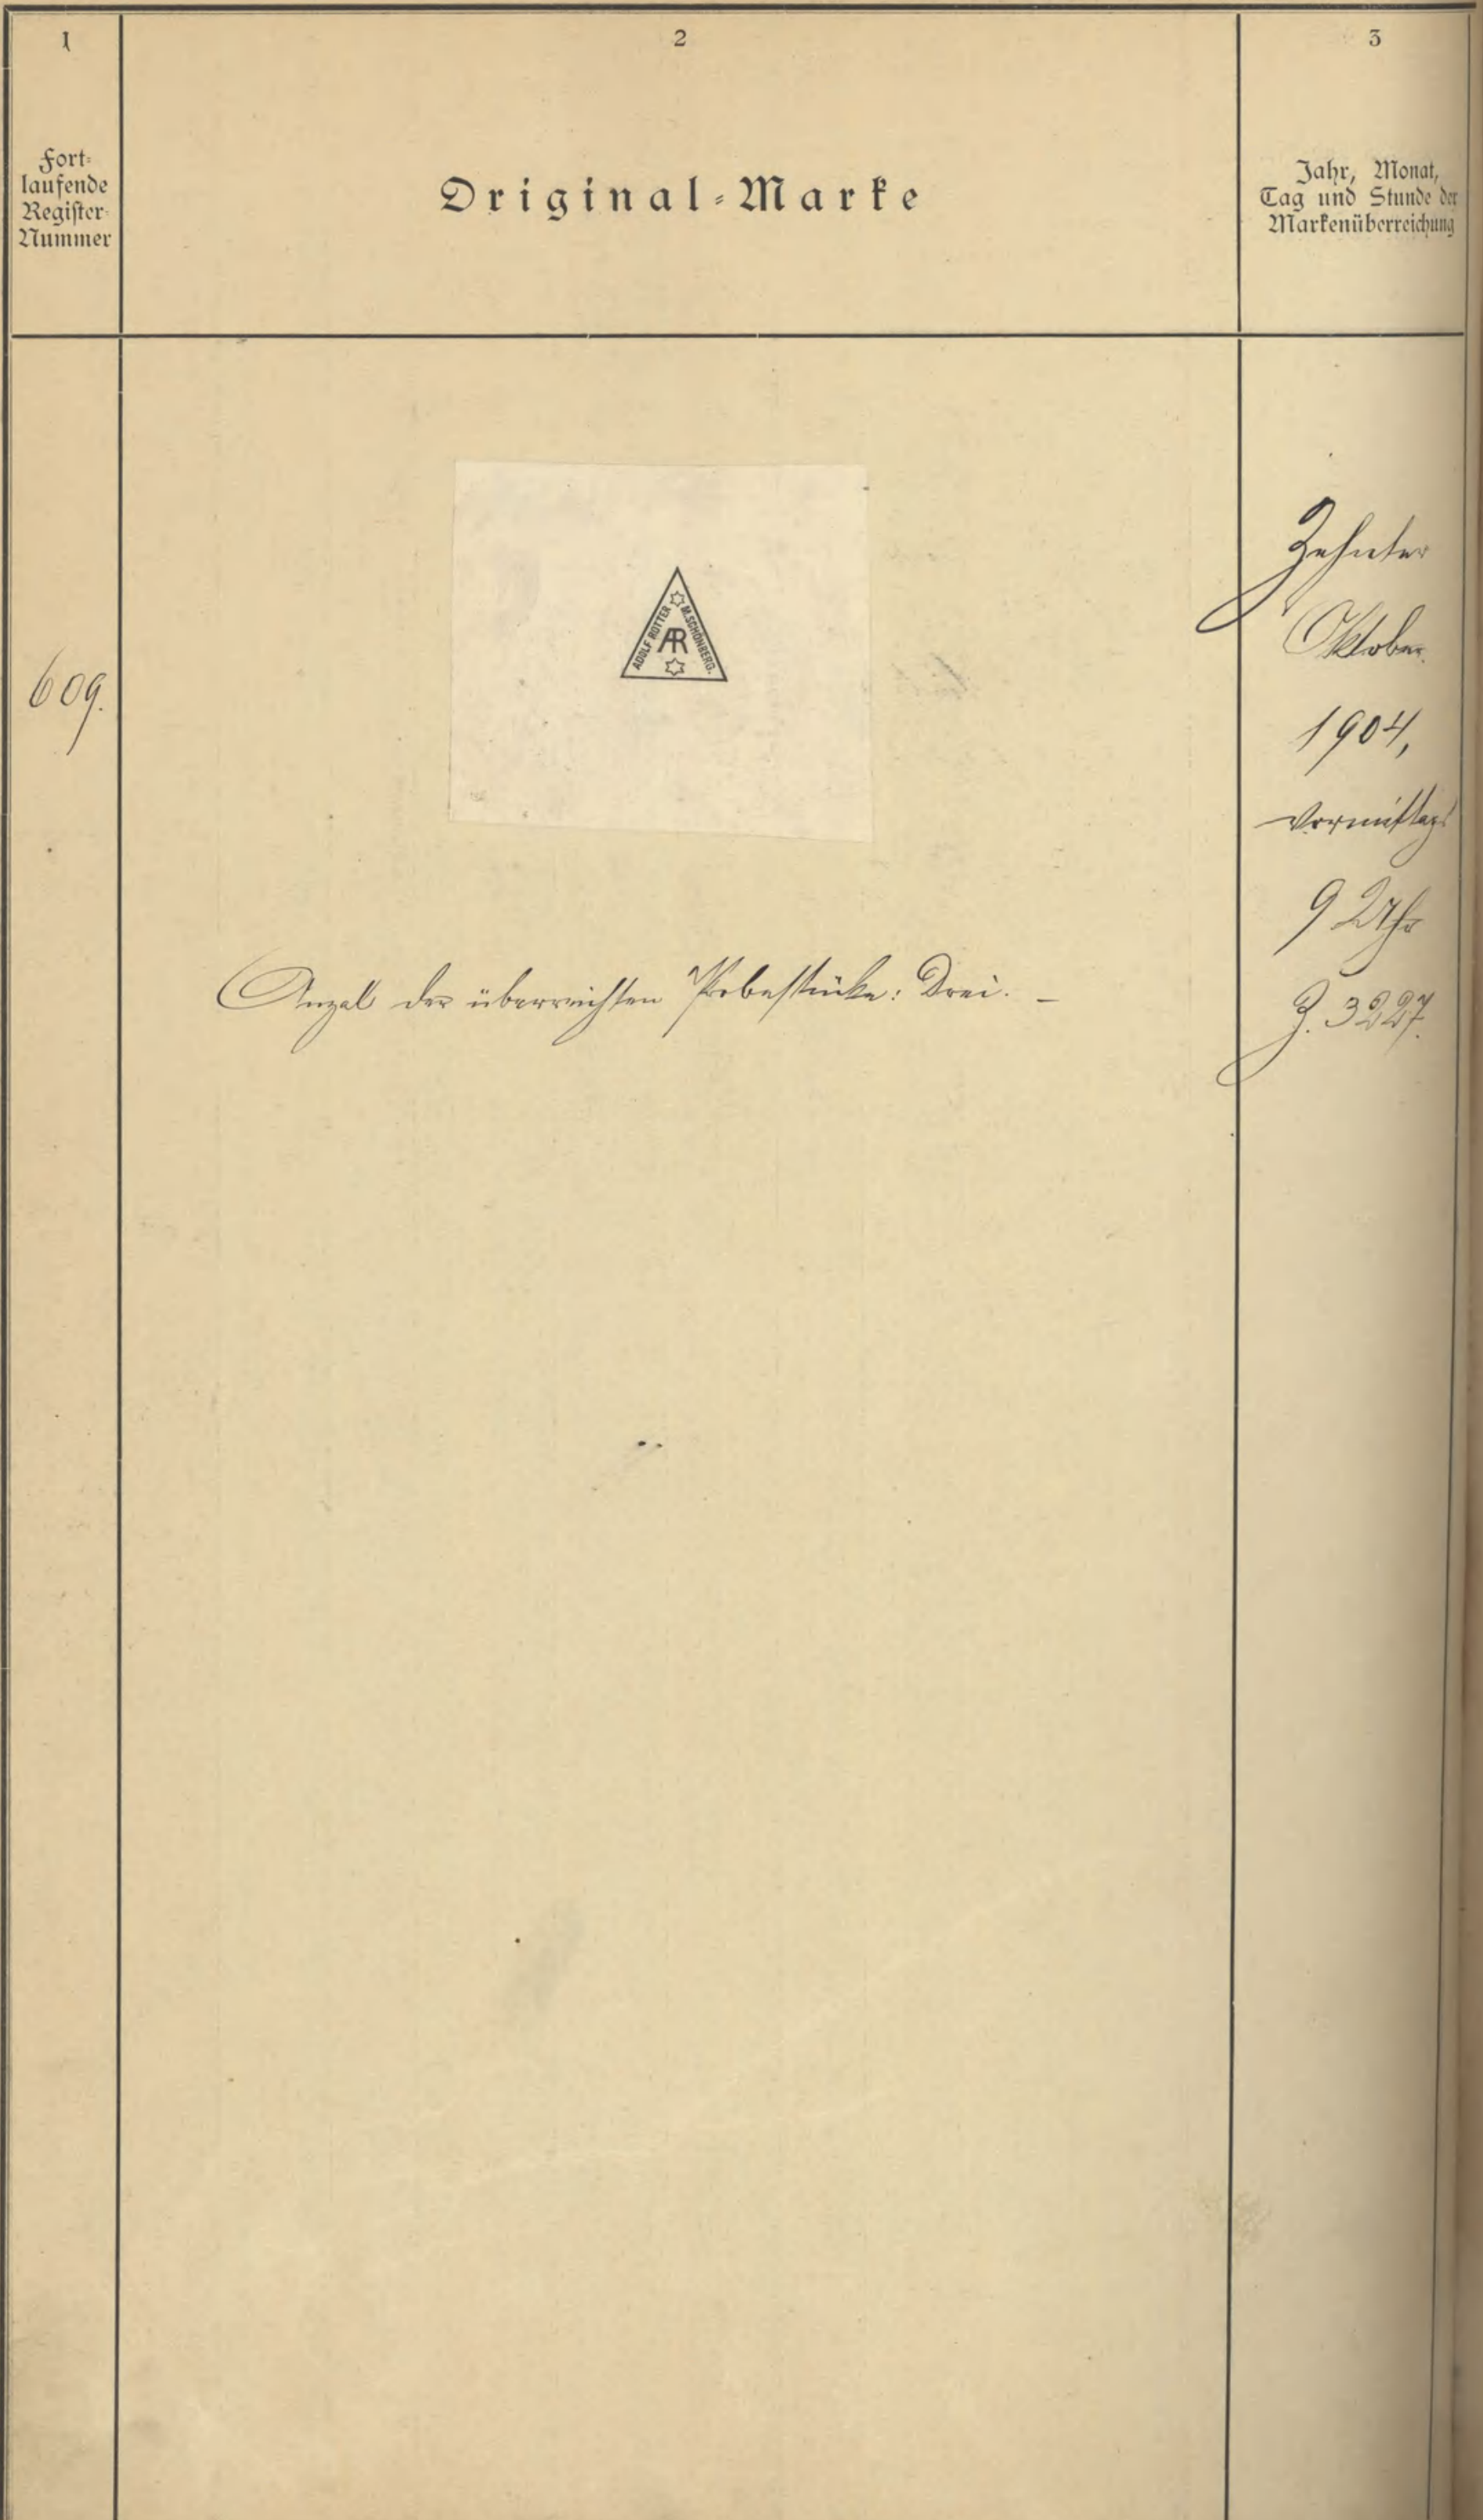 1
Fort-
laufende
Register-
Nummer
2
Original-Marke
3
Jahr, Monat,
Tag und Stunde der
Markenüberreichung
609.
ADOLF ROTTER
M. SCHÖNBERG.
AR
Anzal der überreichten Probestücke: Drei. –
Zehnter
Oktober
1904,
Vormittags
9 Uhr
Z. 3227.